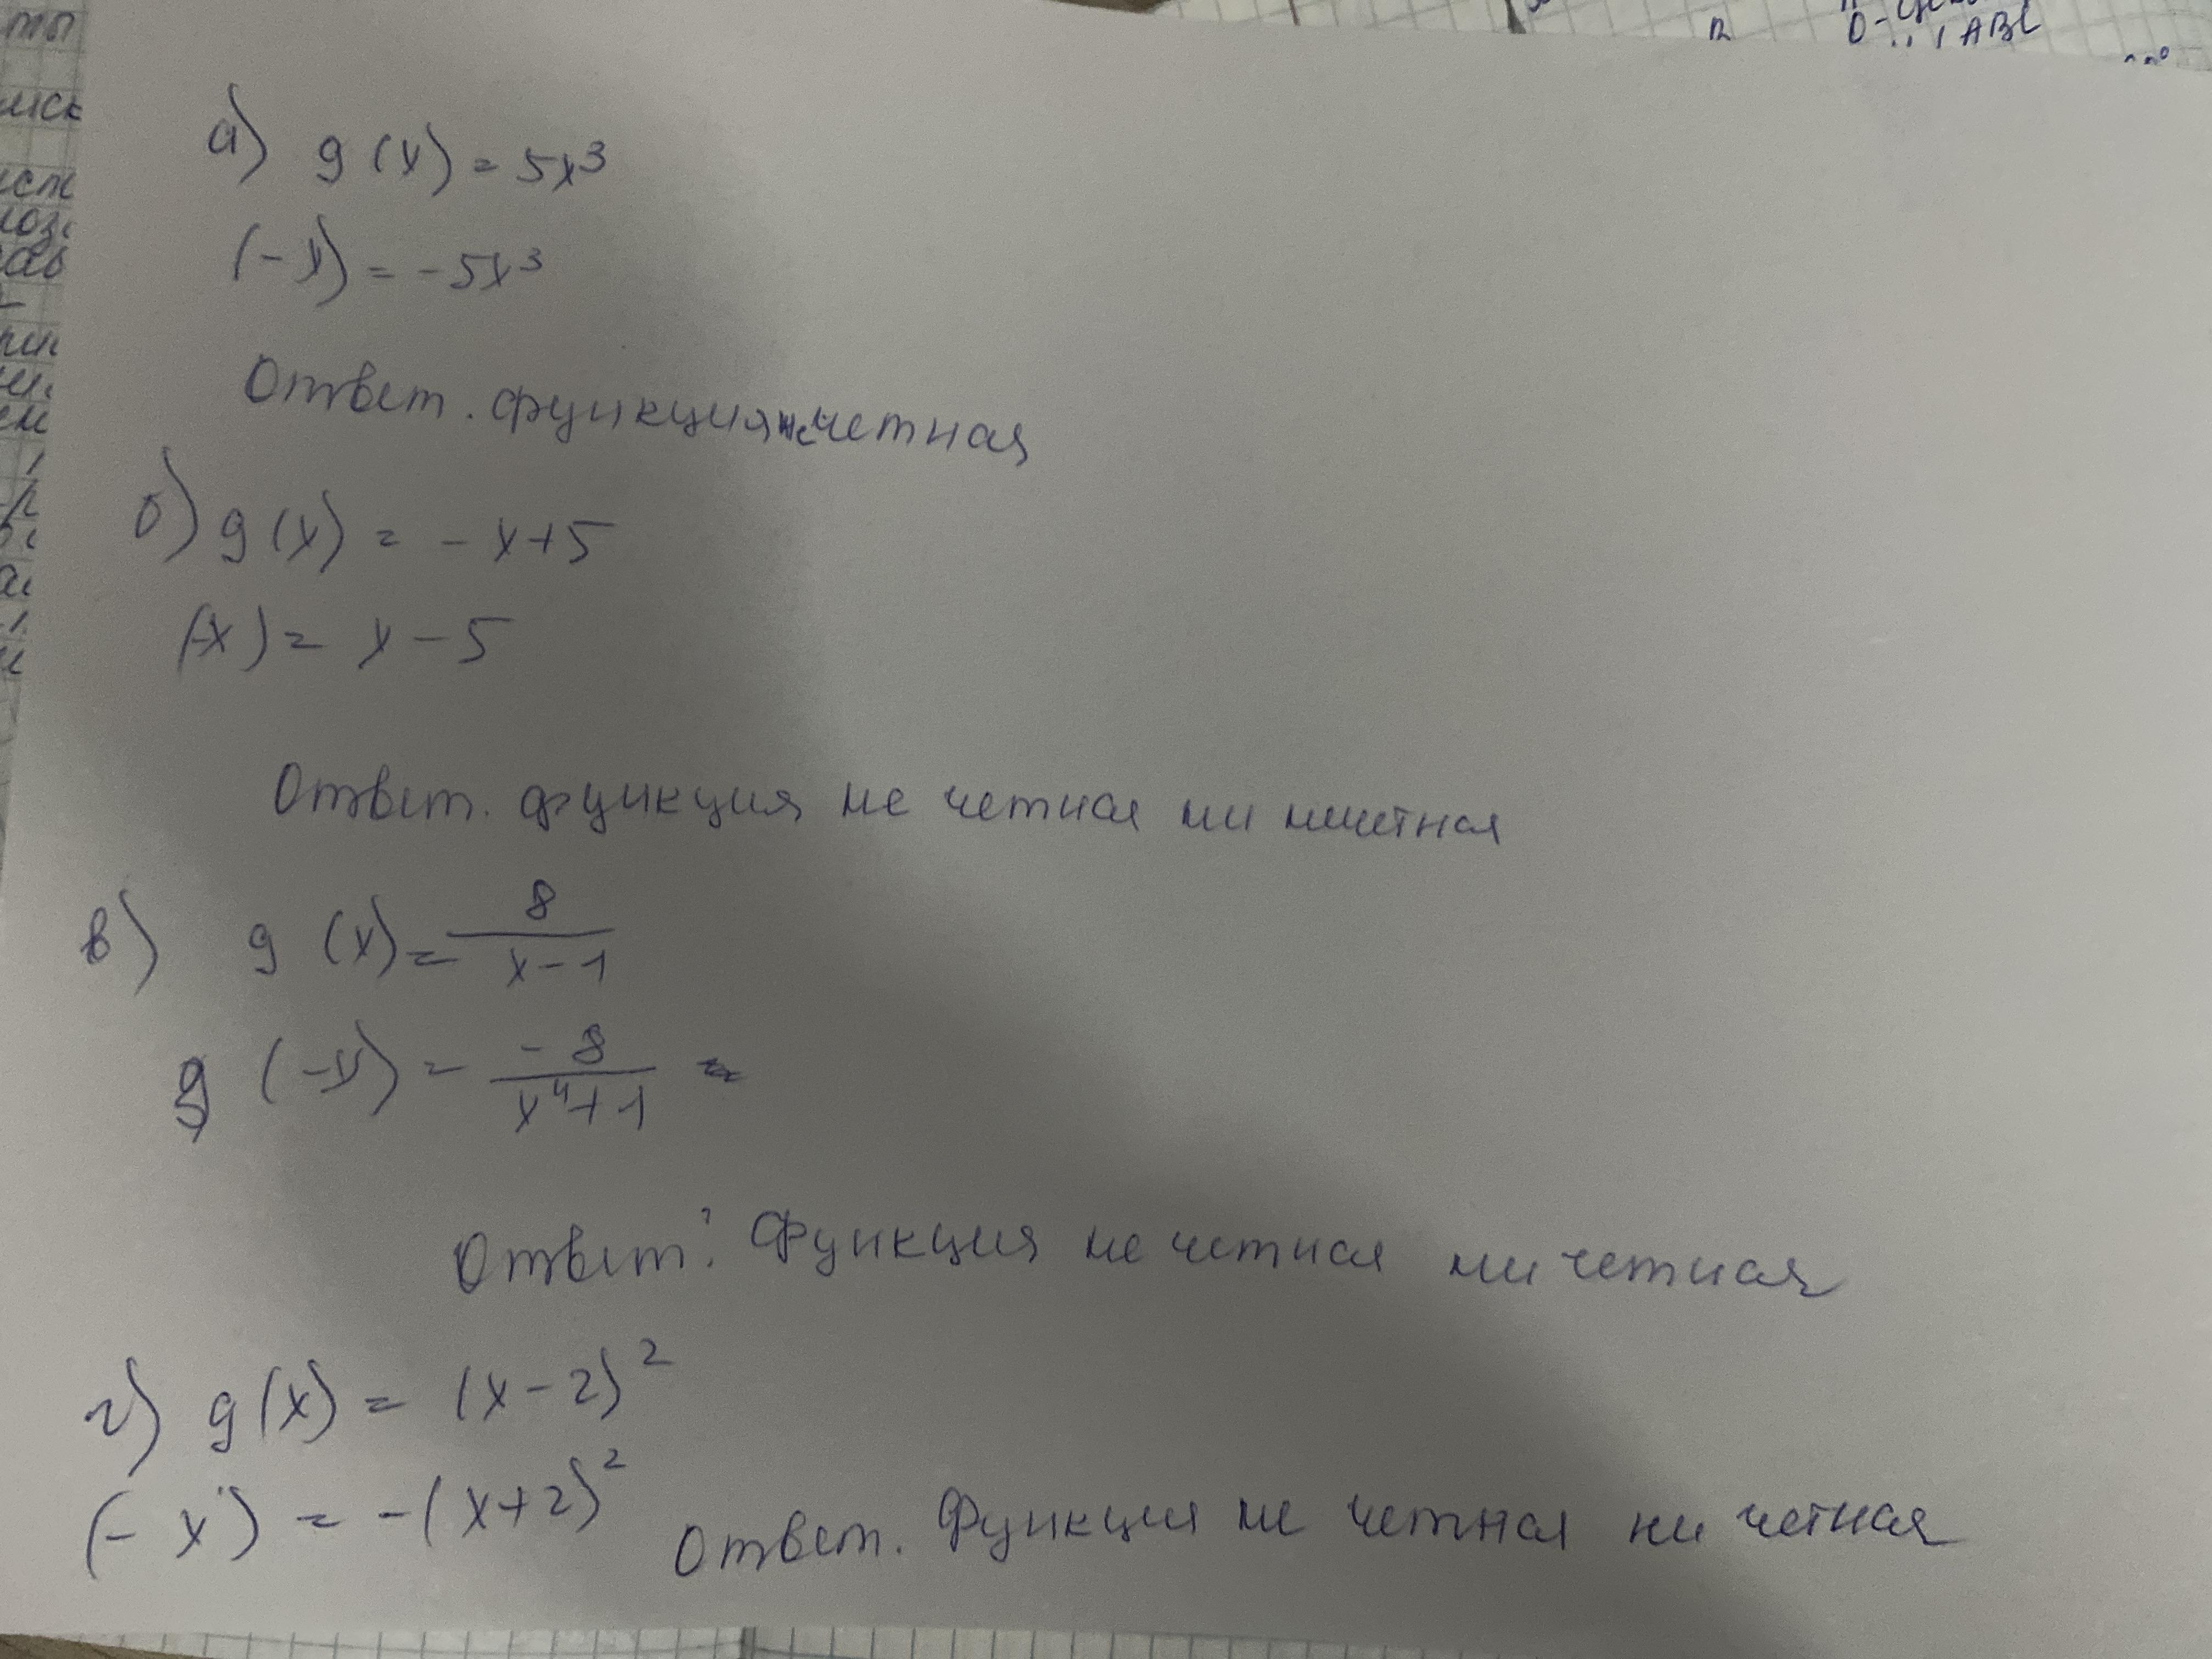 O-
ABC
ты
а) g(x) = 5x³
(-x) = -5x³
Ответ. функция нечетная
б) g(x) = -x+5
(-x) = x-5
Ответ. функция не четная ни нечетная
в) g(x) = 8/(x-1)
g(-x) = -8/(x⁴+1)
Ответ: функция не четная ни четная
г) g(x) = (x-2)²
(-x) = -(x+2)² Ответ. Функция не четная ни четная